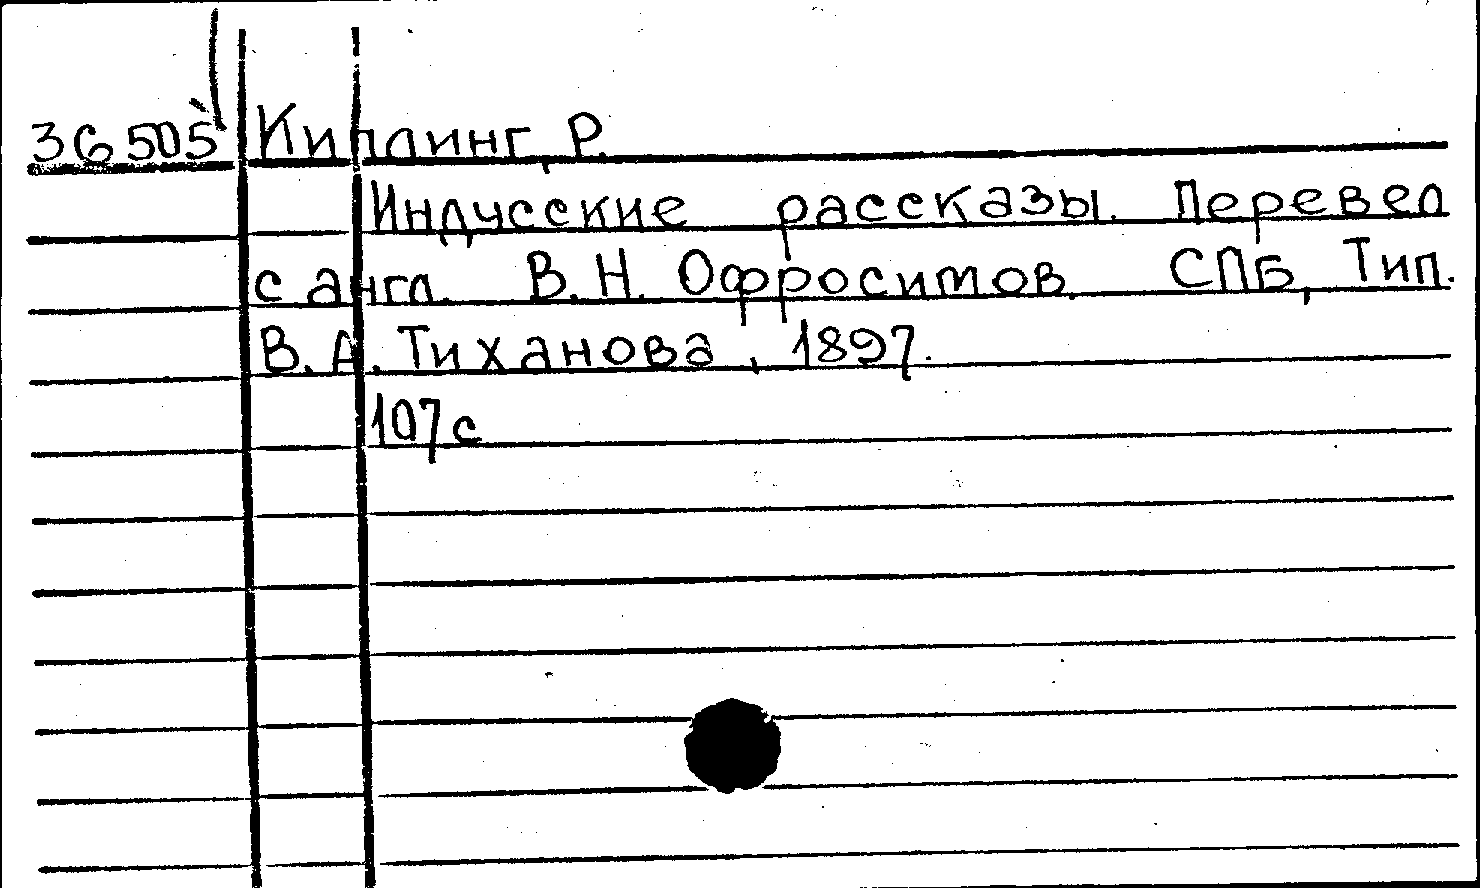 36505 Киплинг, Р.
Индусские рассказы. Перевел
с англ. В. Н. Офросимов. СПБ, Тип.
В. А. Тиханова, 1897.
107 с